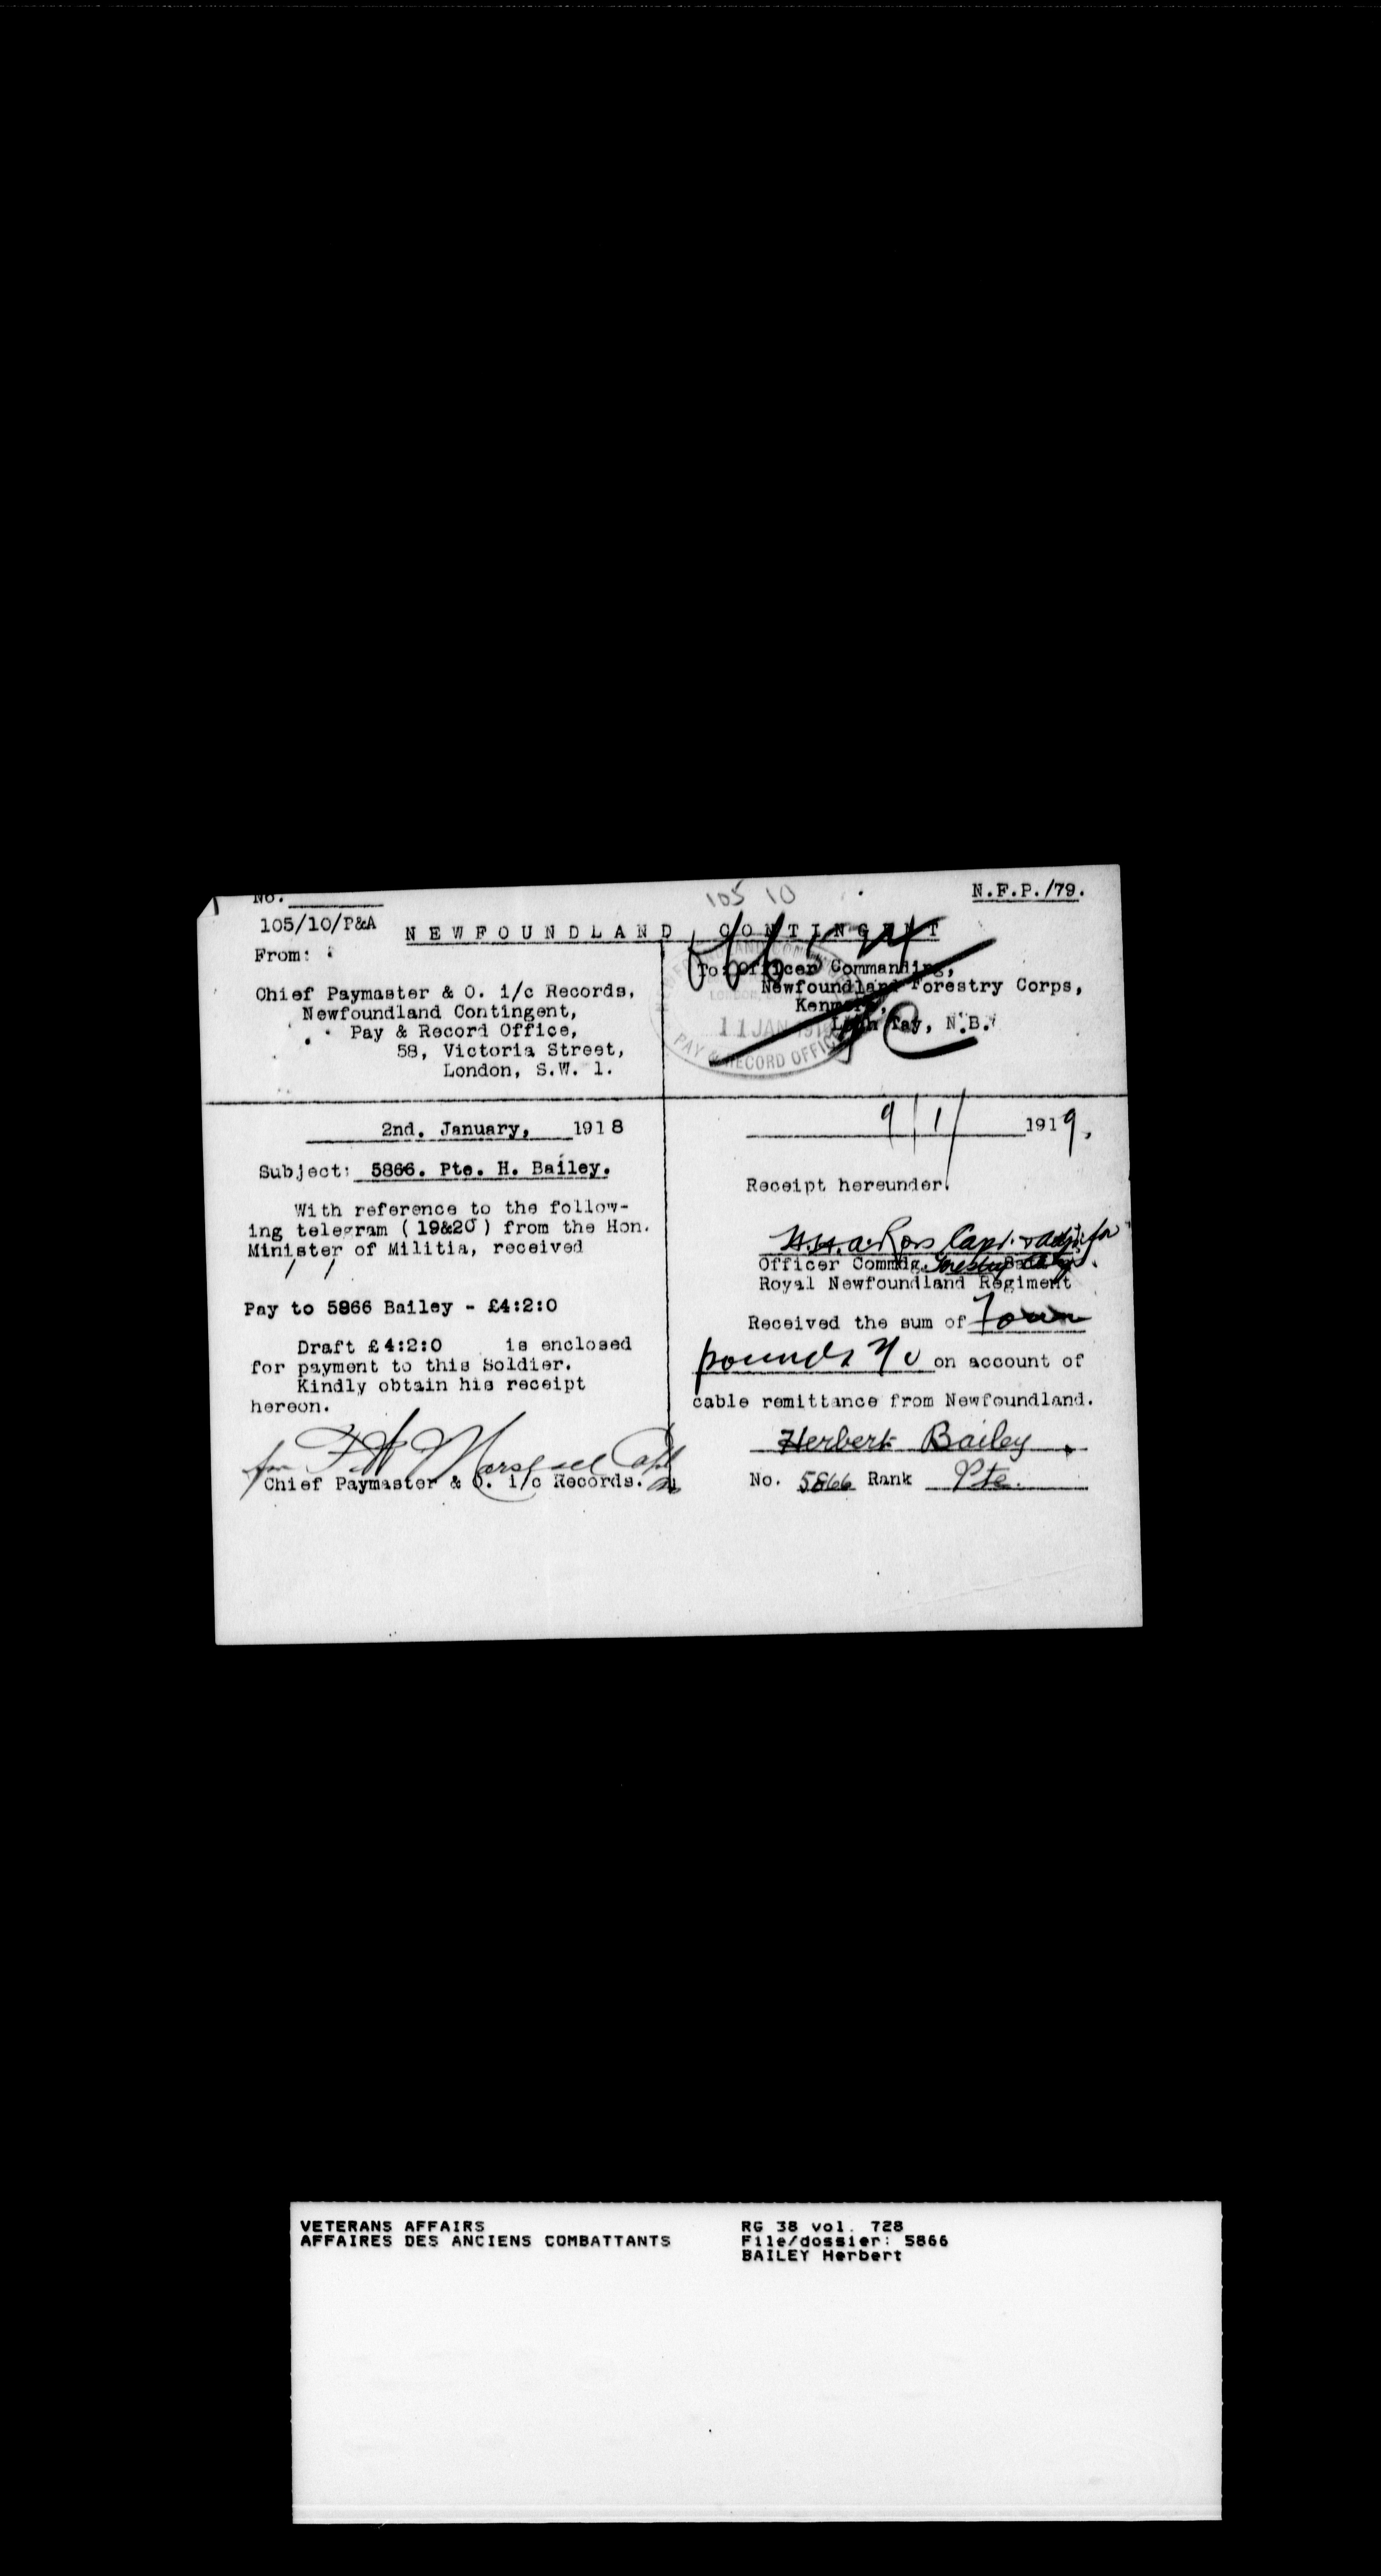 No.
105 10
N.F.P./79.
105/10/P&A
NEWFOUNDLAND CONTINGENT
From:
Chief Paymaster & O. i/c Records,
Newfoundland Contingent,
Pay & Record Office,
58, Victoria Street,
London, S.W. 1.
To: Officer Commanding,
Newfoundland Forestry Corps,
Kenmore,
Loch Tay, N.B.
11 JAN
PAY & RECORD OFFICE
2nd. January, 1918
Subject: 5866. Pte. H. Bailey.
With reference to the follow-
ing telegram (19&20) from the Hon.
Minister of Militia, received
/ /
Pay to 5966 Bailey - £4:2:0
Draft £4:2:0 is enclosed
for payment to this Soldier.
Kindly obtain his receipt
hereon.
for F.H. Marshall Capt
Chief Paymaster & O. i/c Records.
9/1/ 1919,
Receipt hereunder.
Ross Capt. & adjt. for
Officer Commdg. Forestry
Royal Newfoundland Regiment
Received the sum of Four
pounds 2/0 on account of
cable remittance from Newfoundland.
Herbert Bailey
No. 5866 Rank Pte.
VETERANS AFFAIRS
AFFAIRES DES ANCIENS COMBATTANTS
RG 38 vol. 728
File/dossier: 5866
BAILEY Herbert